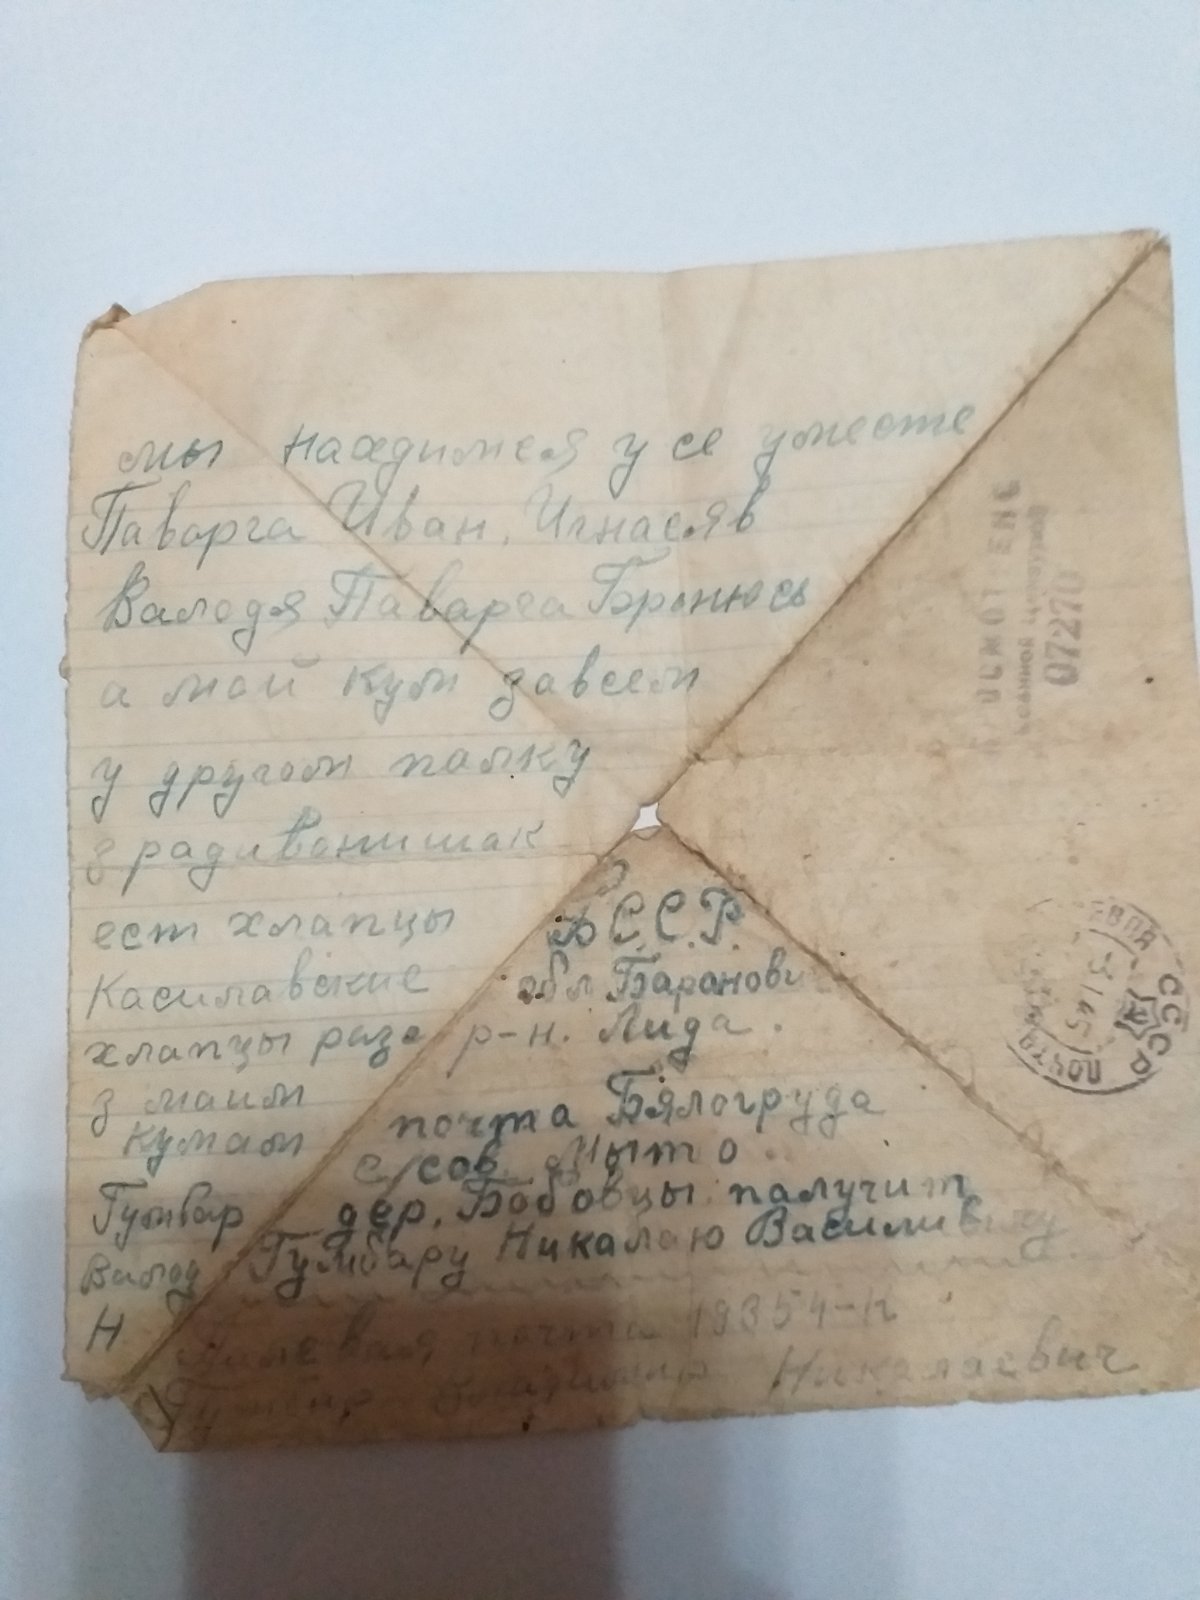 мы находимся у се уместе
Паварга Иван. Игнасяв
Валодя Паварга Бронюсь
а мой кум завсем
у другом палку
з радивонишак
ест хлапцы
Касилавские
хлапцы разо
з маим
кумам
Гумбар
Валод
Н
Б.С.С.Р.
обл Баранови
р-н. Лида.
почта Бялогруда
с/сов. Мыто
дер. Бобовцы палучит
Гумбару Никалаю Васили
Палевая почта 19354-н
Гумбар Владимир Никалаевич
ПРОСМОТРЕНО
Военной Цензурой
07270
СССР
ПОЧТА